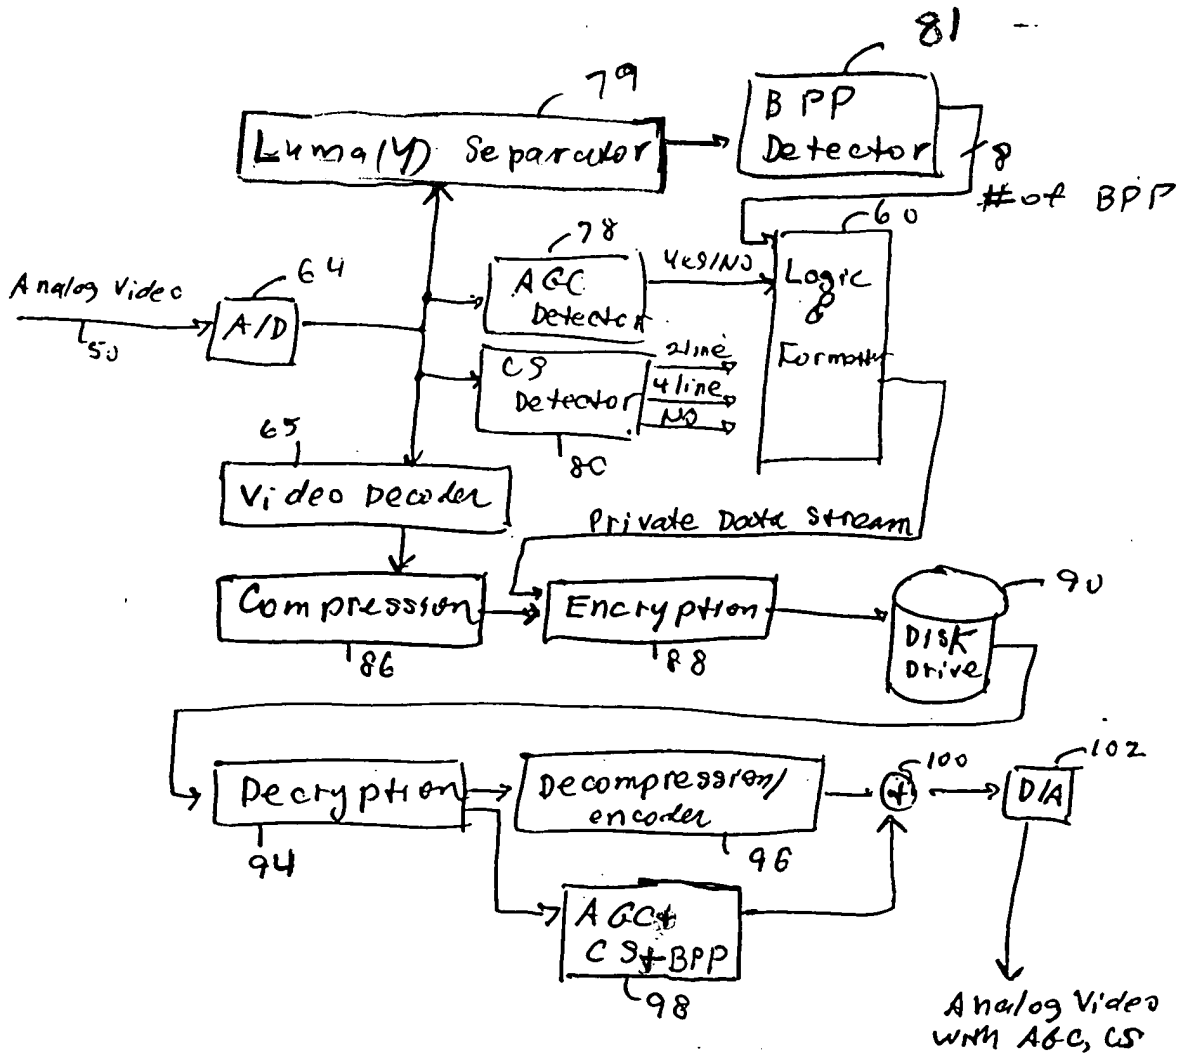 81
79
BPP
Detector
Luma(Y) Separator
8
# of BPP
60
78
64
Analog Video
50
A/D
AGC
Detector
Yes/NO
Logic
&
Formatter
CS
Detector
2line
4line
NO
80
65
Video Decoder
Private Data Stream
Compression
86
Encryption
88
90
Disk
Drive
Decryption
94
Decompression/
encoder
96
100
+
102
D/A
AGC+
CS+BPP
98
Analog Video
with AGC, CS